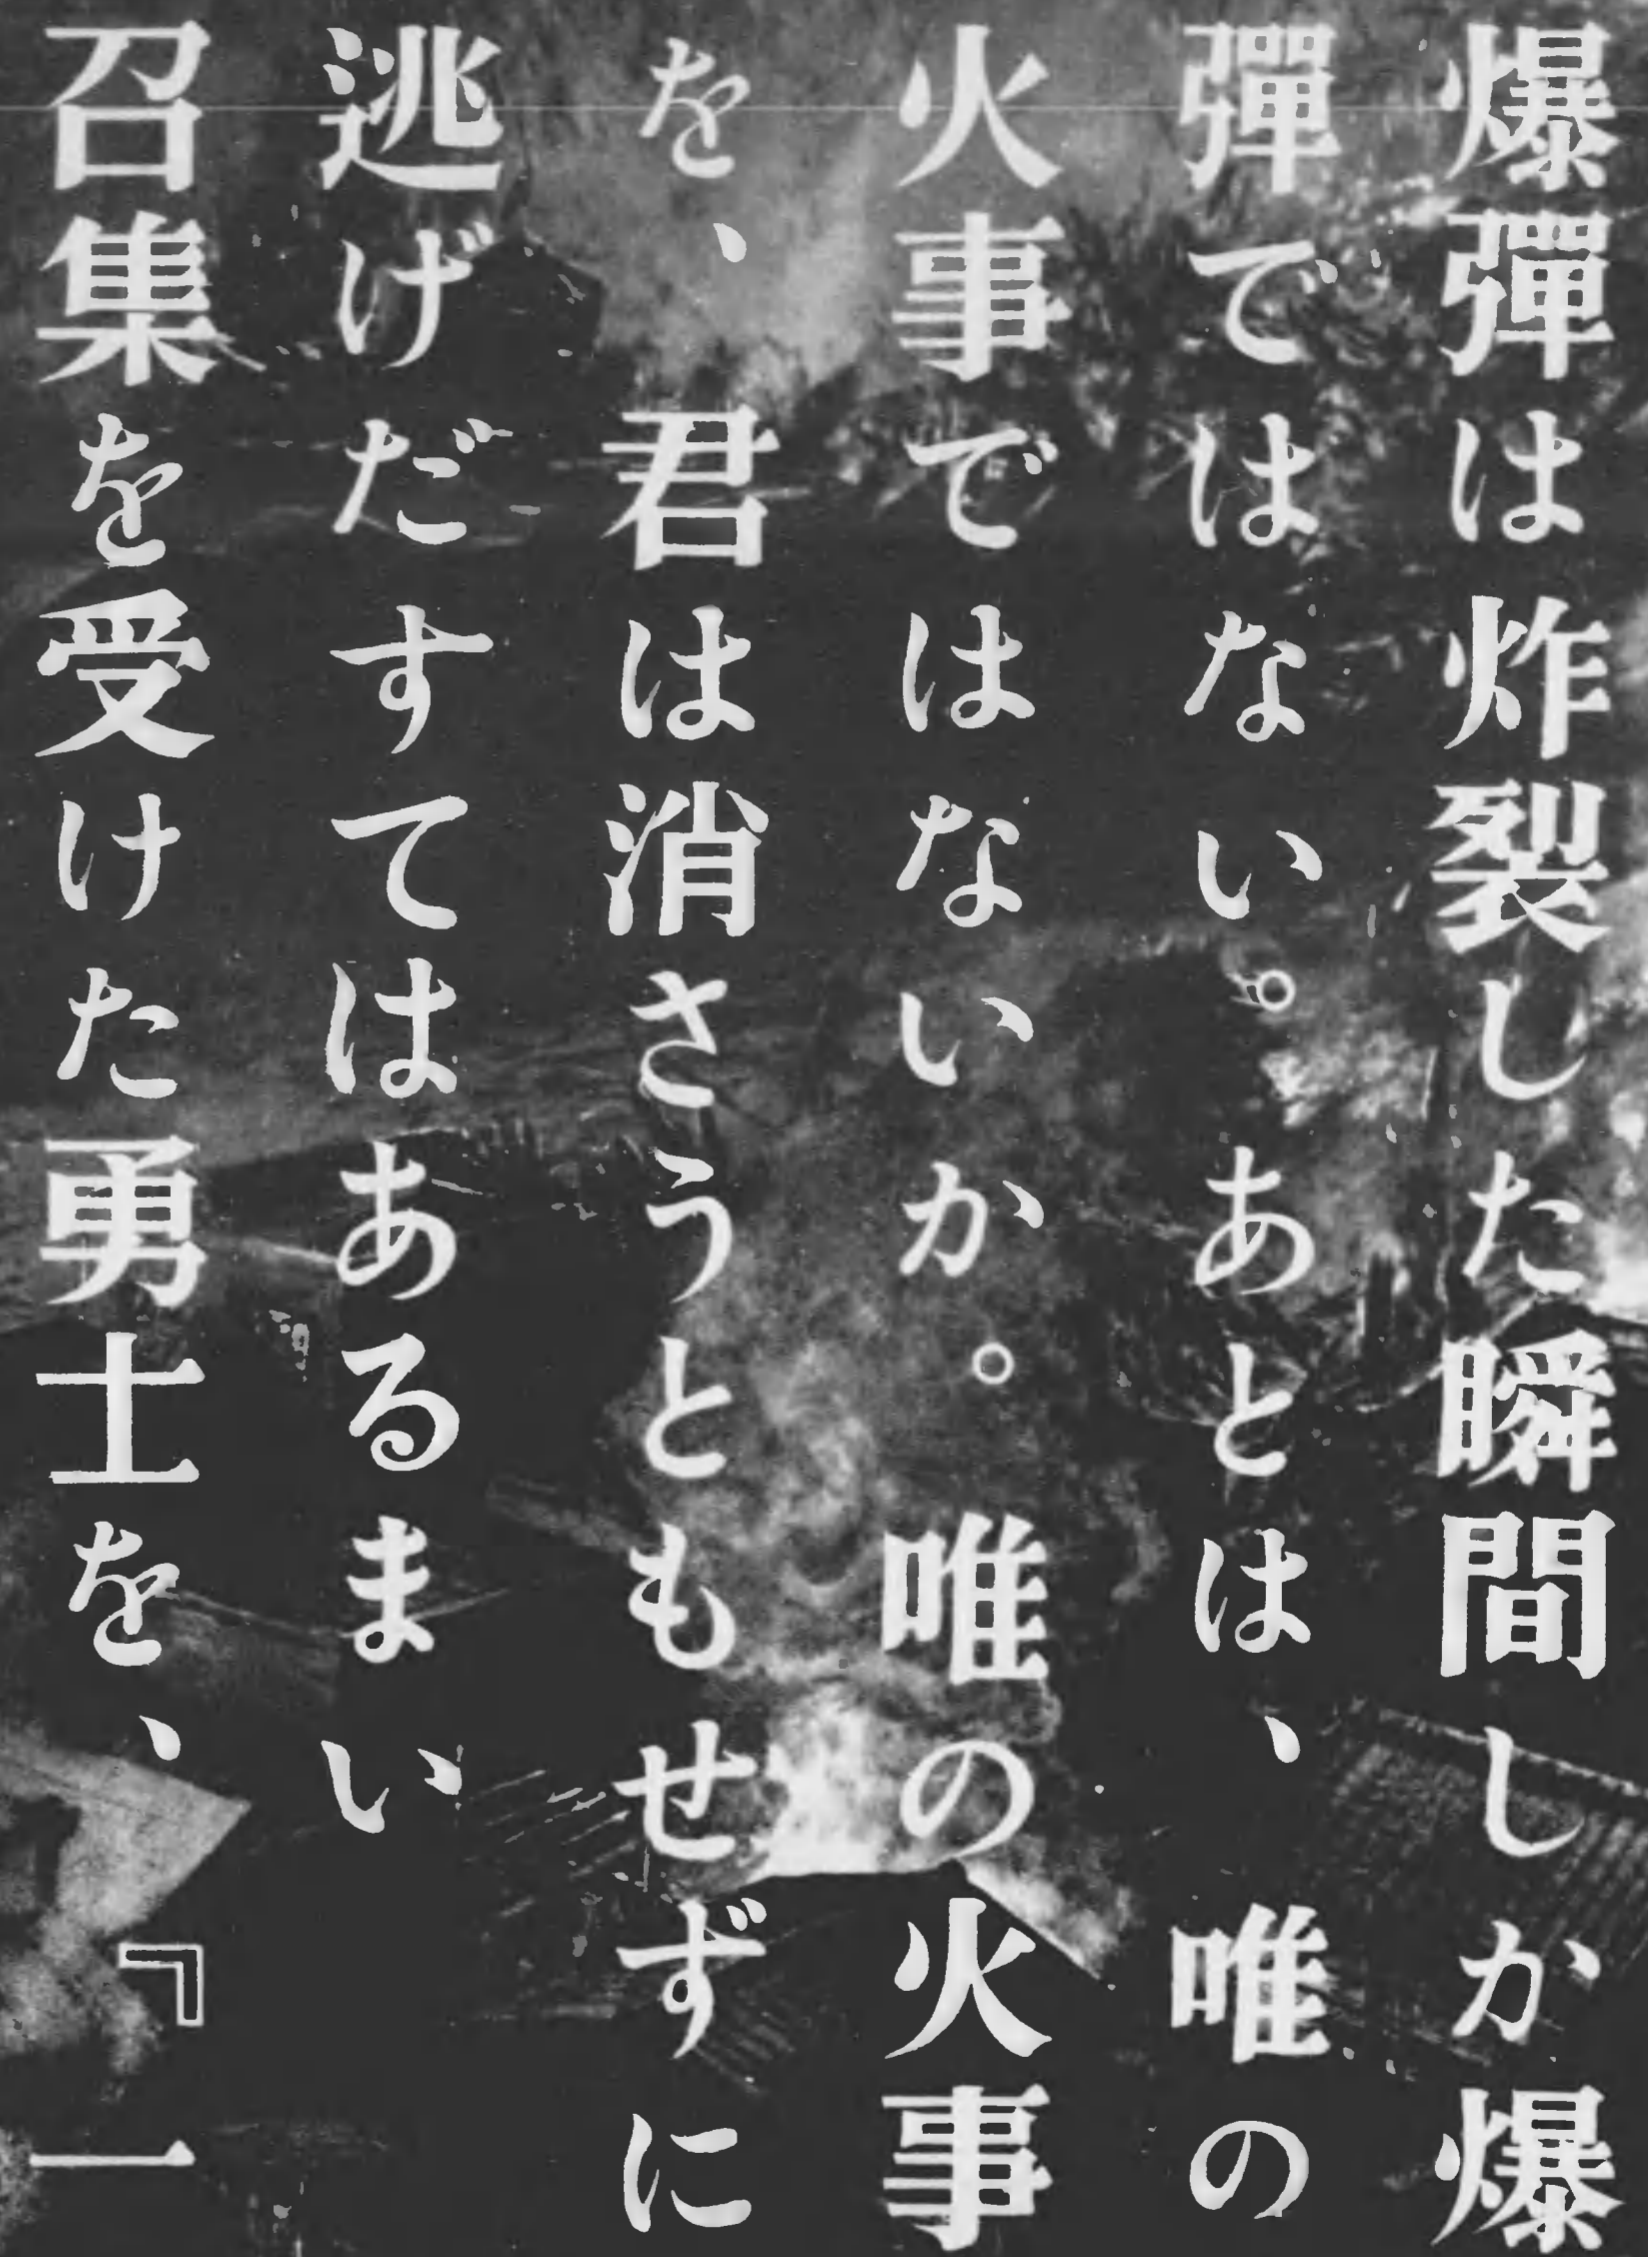 爆彈は炸裂した瞬間しか爆
彈ではない。あとは、唯の
火事ではないか。唯の火事
を、君は消さうともせずに
逃げだすてはあるまい
召集を受けた勇士を、『一